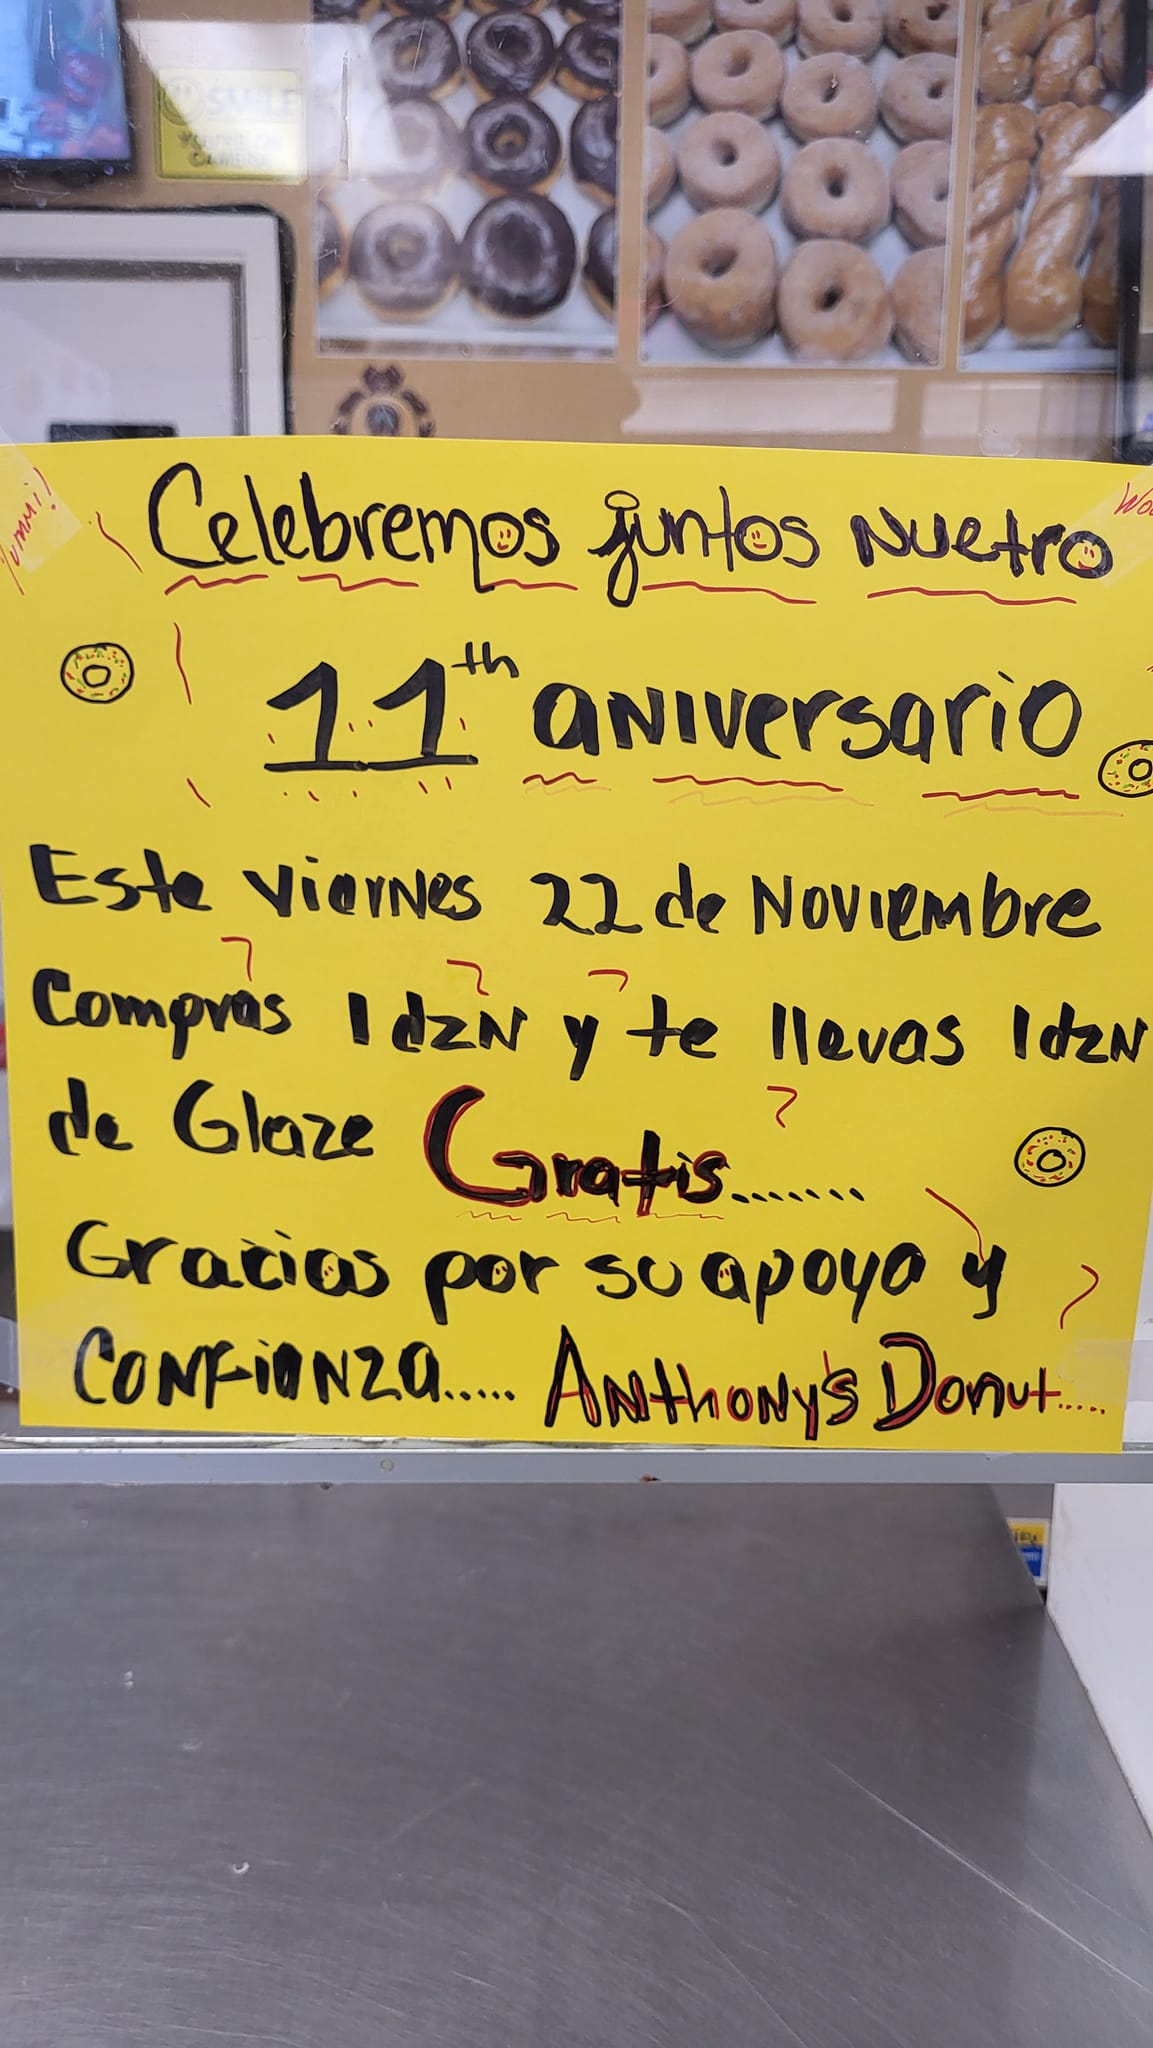 SMILE
YOU'RE ON
CAMERA
Yummi!
Celebremos juntos Nuetro
11th aniversario
Este viernes 22 de Noviembre
Compras 1 dzN y te llevas 1 dzN
de Glaze Gratis.......
Gracias por su apoyo y
CONFianza..... Anthony's Donut.....